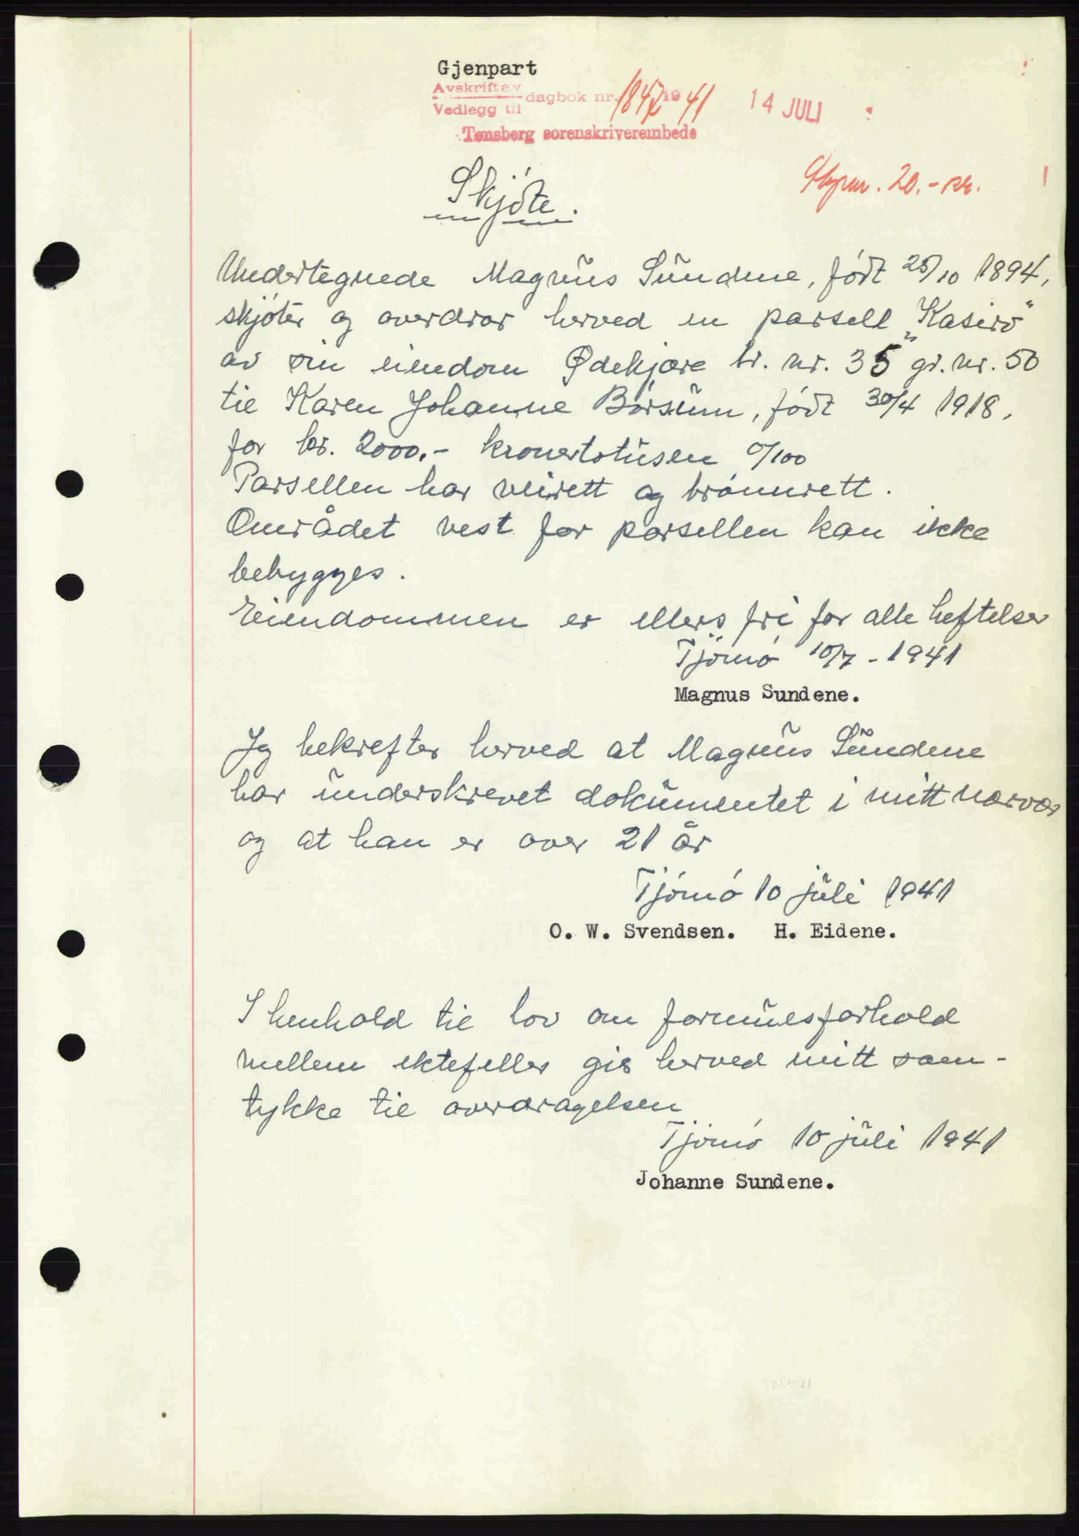 Gjenpart
Avskrift av
Vedlegg til dagbok nr. 1847 1941 14 JULI
Tønsberg sorenskriverembede
20.- kr.
Skjöte.
Undertegnede Magnus Sundene, födt 25/10 1894,
skjöter og overdrar herved en parsell „Kasirö"
av sin eiendom Ødekjære br. nr. 35 gr. nr. 50
til Karen Johanne Börsum, födt 30/4 1918,
for kr. 2000.- kronertotusen 0/100
Parsellen har veirett og brönnrett.
Området vest for parsellen kan ikke
bebygges.
Eiendommen er ellers fri for alle heftelser
Tjömö 10/7 - 1941
Magnus Sundene.
Jg bekrefter herved at Magnus Sundene
har underskrevet dokumentet i mitt nærvær
og at han er over 21 år
Tjömö 10 juli 1941
O. W. Svendsen. H. Eidene.
I henhold til lov om formuesforhold
mellem ektefeller gis herved mitt sam-
tykke til overdragelsen
Tjömö 10 juli 1941
Johanne Sundene.